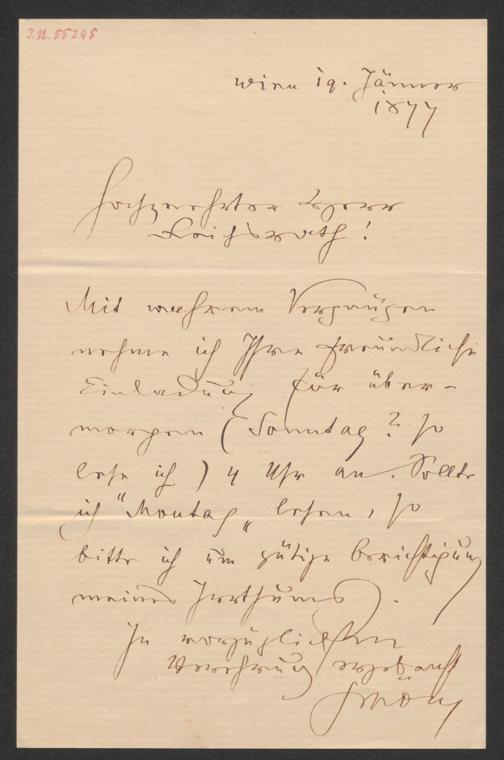 I.N. 55245
Wien 19. Jänner
1877
Hochgeehrter Herr
Reichsrath!
Mit wahrem Vergnügen
nehme ich Ihre freundliche
Einladung für über-
morgen (Sonntag? so
lese ich) 4 Uhr an. Sollte
ich "Montag" lesen, so
bitte ich um gütige Berichtigung
meines Irrthums).
In vorzüglichster
Verehrung ergebenst